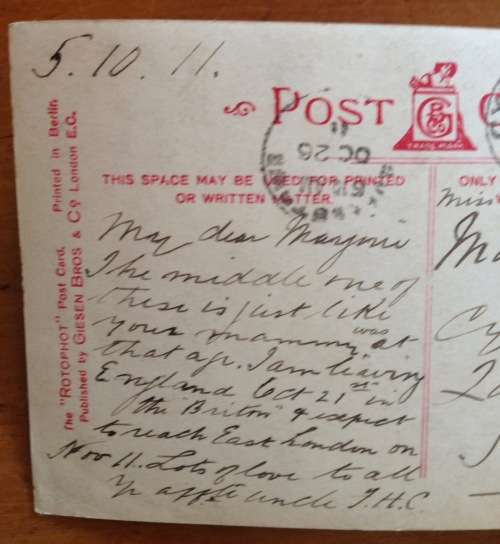 5.10.11.
POST C
GB
TRADE MARK
OC 26
11
THIS SPACE MAY BE USED FOR PRINTED
OR WRITTEN MATTER.
ONLY
Miss
The "ROTOPHOT" Post Card. Printed in Berlin
Published by GIESEN BROS & Co London E.C.
My dear Marjorie
The middle one of
these is just like
your mammy was at
that age. I am leaving
England Oct 21st in
the "Briton" & expect
to reach East London on
Nov 11. Lots of love to all
Yr affte uncle T.H.C.